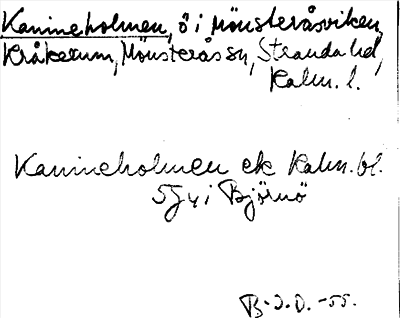 Kanineholmen, ö i Mönsteråsviken,
Kråkerum, Mönsterås sn, Stranda hd,
Kalm. l.
Kanineholmen ek Kalm. bl.
5G4i Björnö
B-J.O. -55.